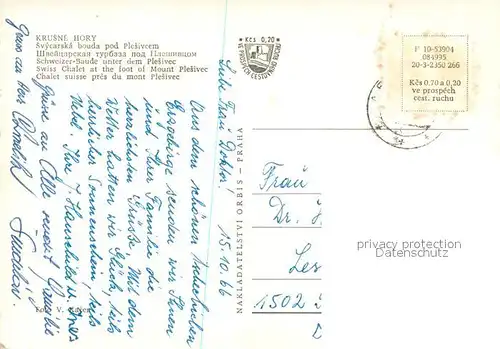 KRUŠNÉ HORY
Švýcarská bouda pod Plešivcem
Швейцарская турбаза под Плешивцом
Schweizer-Baude unter dem Plešivec
Swiss Chalet at the foot of Mount Plešivec
Chalet suisse près du mont Plešivec
Kčs 0,20
VE PROSPĚCH CESTOVNÍHO RUCHU
F 10-53904
084935
20-3-2350 266
Kčs 0.70 a 0,20
ve prospěch
cest. ruchu
15.10.66
Liebe Frau Doktor!
Aus dem schönen
Erzgebirge senden wir Ihnen
und Ihrer Familie die
herzlichsten Grüsse. Mit dem
Wetter hatten wir Glück, teils
herrlicher Sonnenschein, teils
Nebel. Ihre
Grüsse an Alle sendet
NAKLADATELSTVÍ ORBIS - PRAHA
Frau
Dr.
1502
privacy protection
Datenschutz
Foto V.